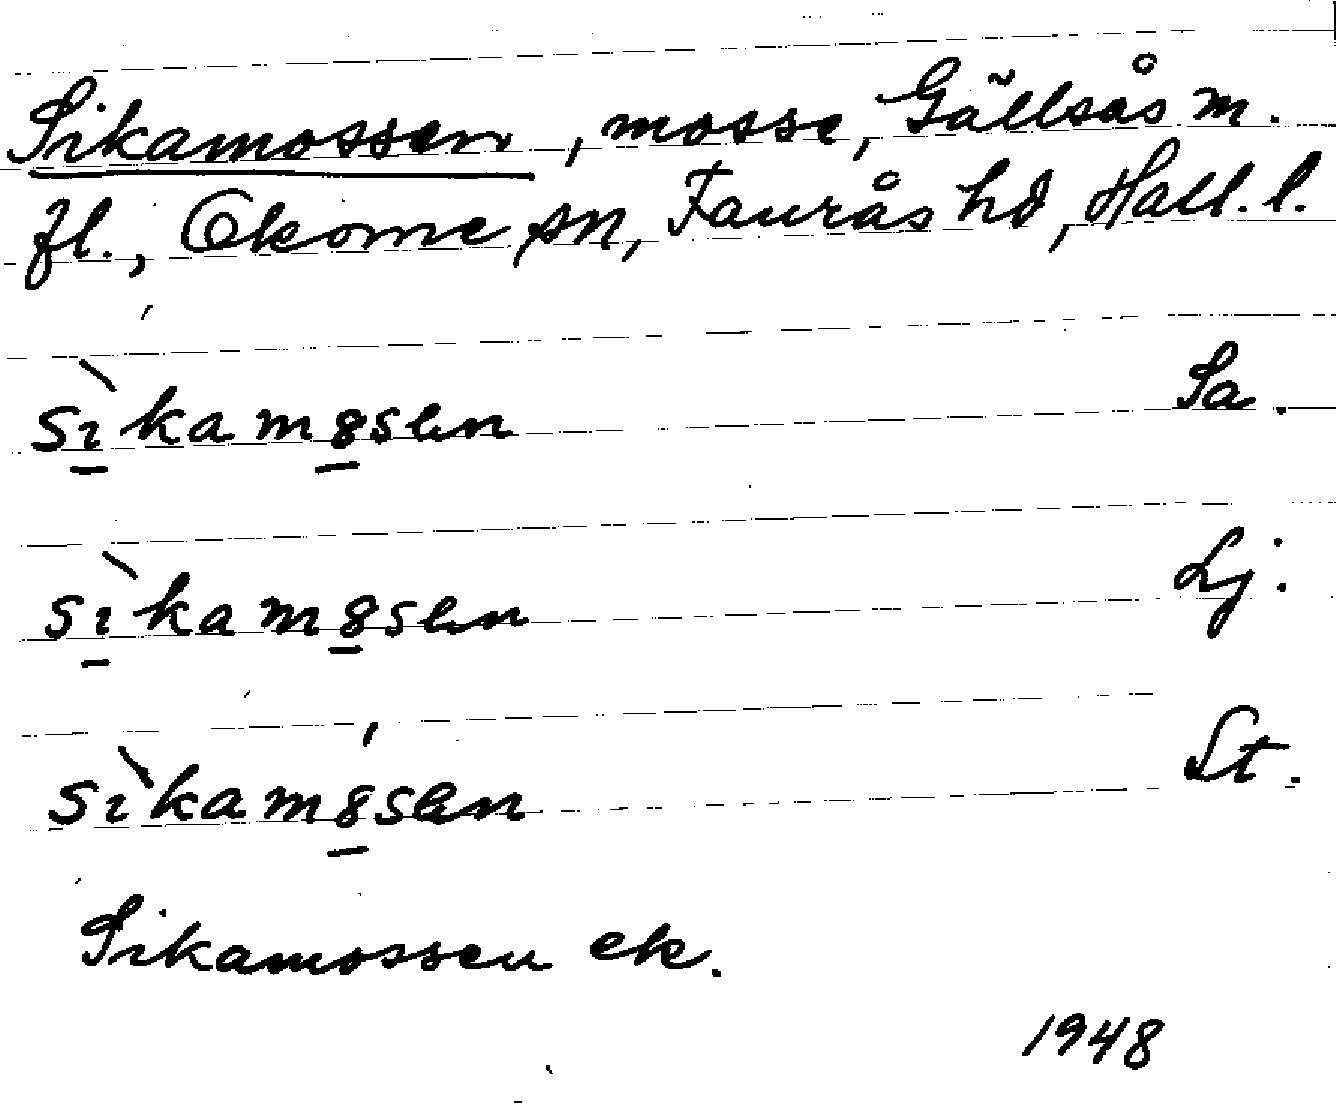 Sikamossen, mosse, Gällsås m.
fl., Okome sn, Faurås hd, Hall. l.
sı̀kamꝏsen Sa.
sı̀kamꝏsen Lj.
sı̀kamꝏsen St.
Sikamossen ek.
1948